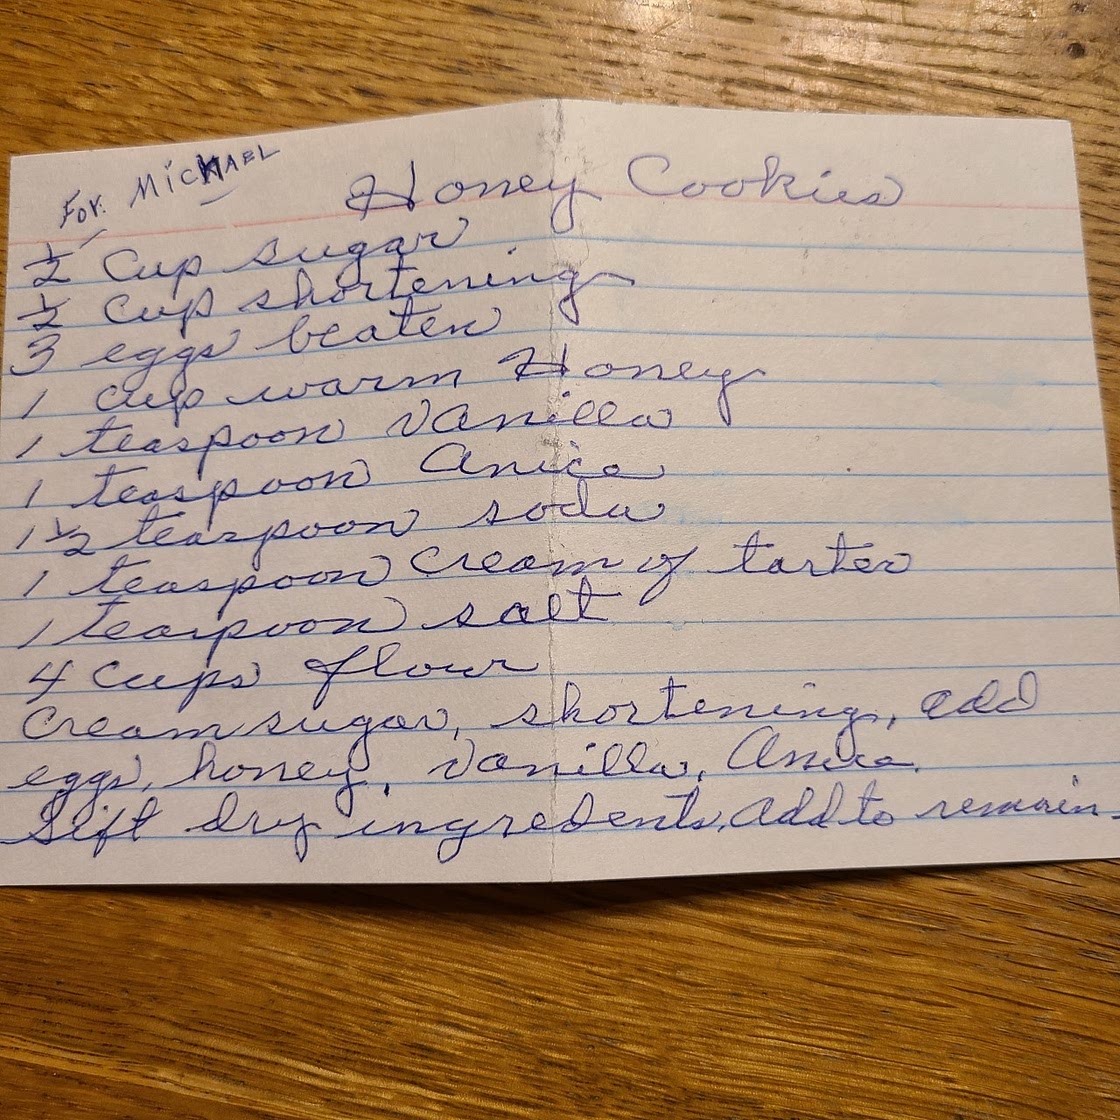 For. MicHAEL
Honey Cookies
½ Cup sugar
½ cup shortening
3 eggs beaten
1 cup warm Honey
1 teaspoon Vanilla
1 teaspoon Anice
1 ½ teaspoon soda
1 teaspoon cream of tarter
1 teaspoon salt
4 cups flour
Cream sugar, shortening, add
eggs, honey, Vanilla, Anice.
Sift dry ingredents, add to remain-